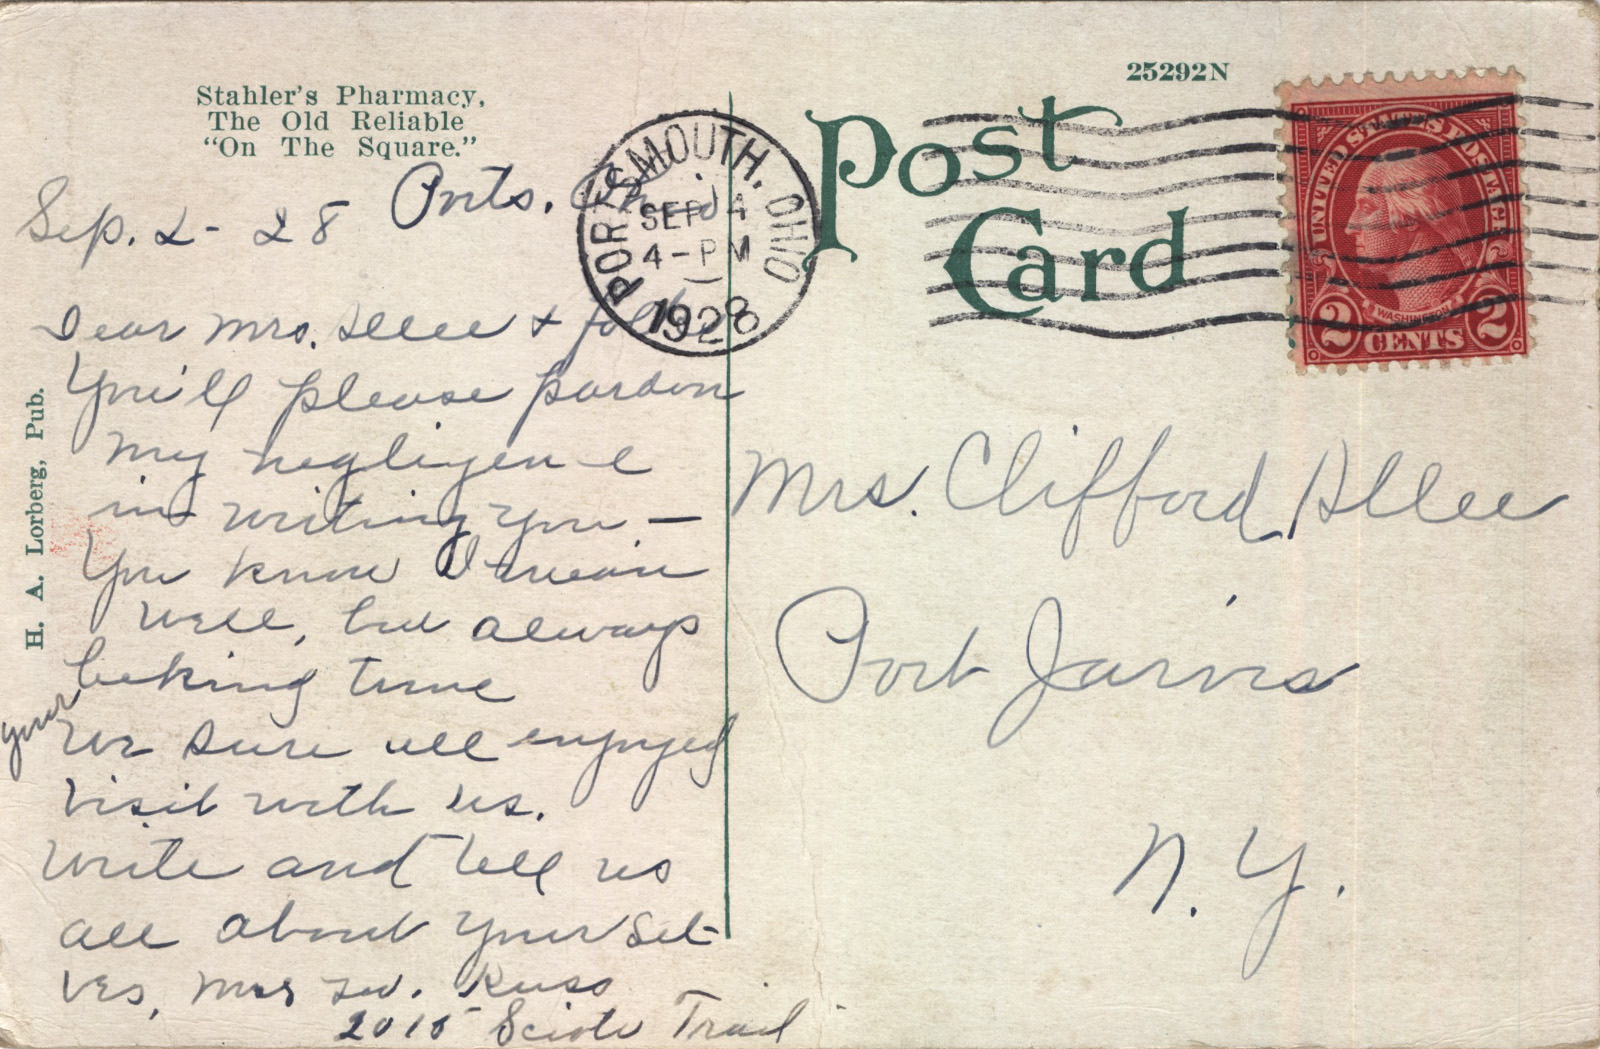 Stahler's Pharmacy,
The Old Reliable
"On The Square."
25292N
Post
Card
PORTSMOUTH, OHIO
SEP 4
4-PM
1928
UNITED STATES POSTAGE
WASHINGTON
2 CENTS 2
H. A. Lorberg, Pub.
Ports. Ohio
Sep. 2 - 28
Dear Mrs. Allee & folks
You'll please pardon
my negligence
in writing you —
You know I mean
well, but always
taking time
We sure all enjoyed
your
visit with us.
Write and tell us
all about your sel-
ves, Mrs Russ
2015 Scioto Trail
Mrs. Clifford Allee
Port Jarvis
N. Y.